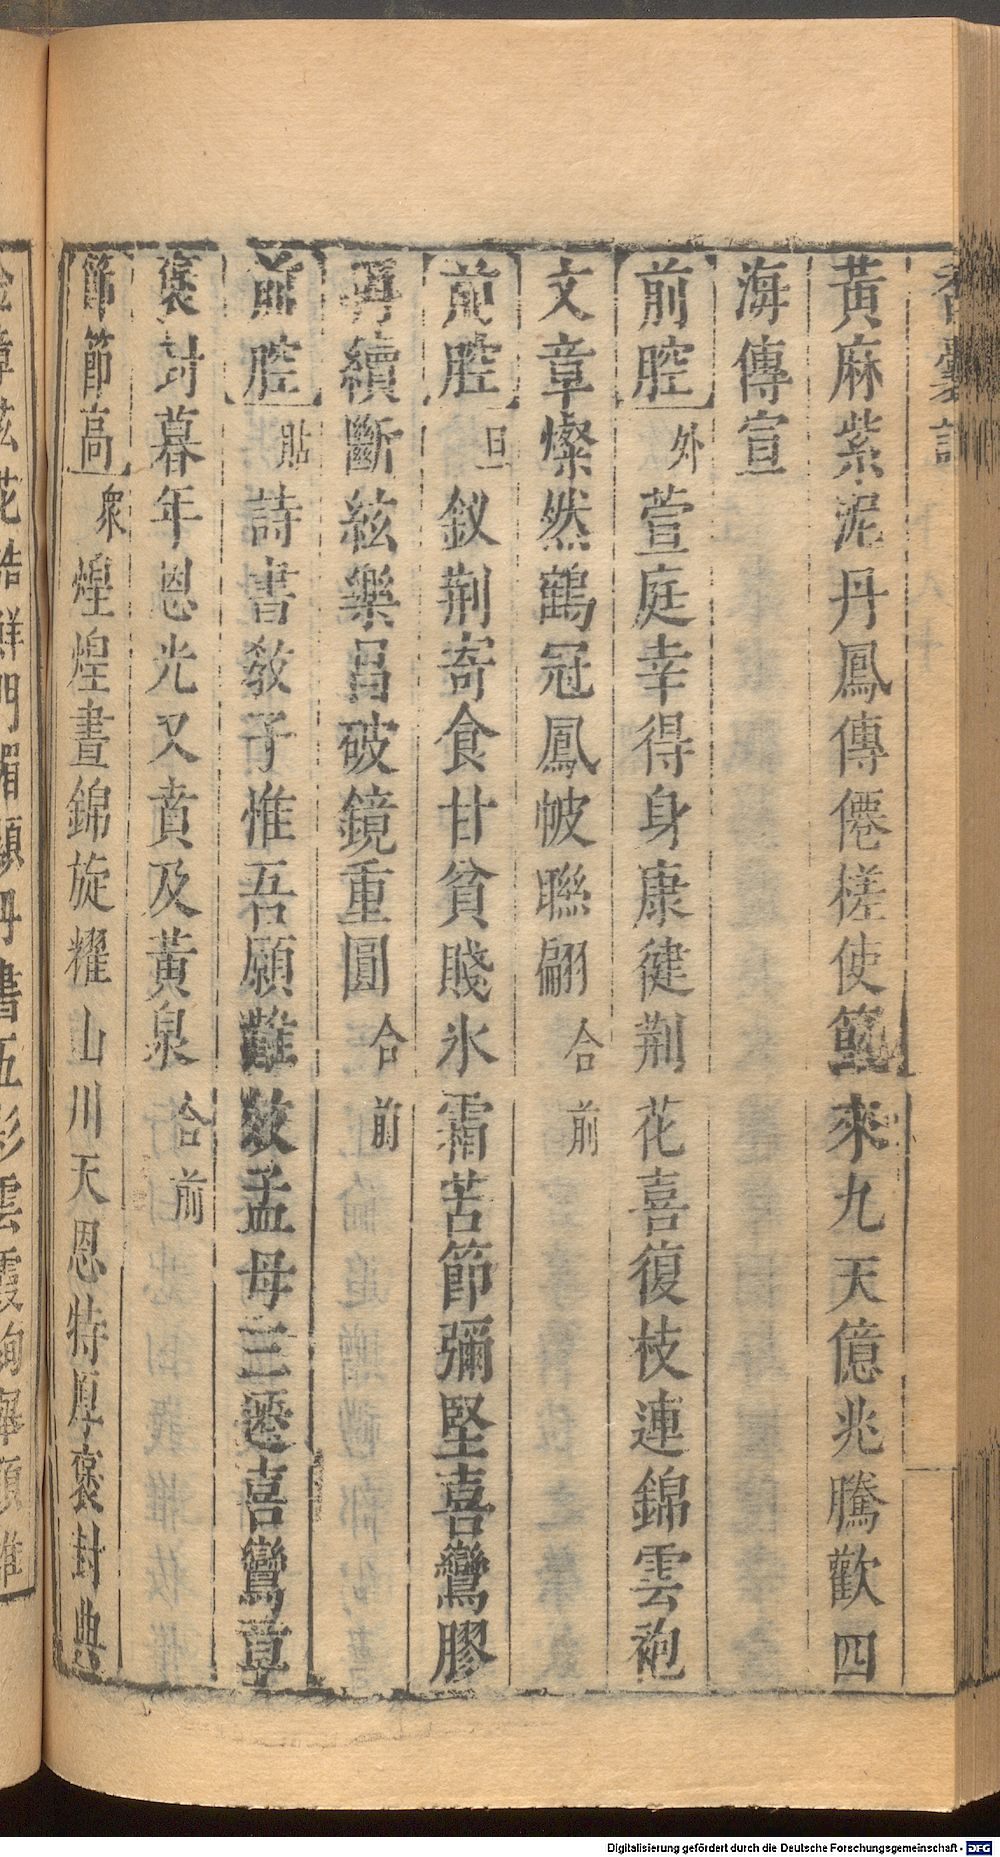 香囊記
黃麻紫泥丹鳳傳僊槎使節來九天億兆騰歡四
海傳宣
前腔 外 萱庭幸得身康健荆花喜復枝連錦雲袍
文章燦然鶴冠鳳帔聯翩 合 前
前腔 旦 釵荆寄食甘貧賤氷霜苦節彌堅喜鸞膠
再續斷絃樂昌破鏡重圓 合 前
前腔 貼 詩書敎子惟吾願難效孟母三遷喜鸞章
褒封暮年恩光又賁及黃泉 合 前
節節高 衆 煌煌晝錦旋耀山川天恩特厚褒封典
花誥鮮門楣顯丹書五彩雲霞絢
Digitalisierung gefördert durch die Deutsche Forschungsgemeinschaft - DFG